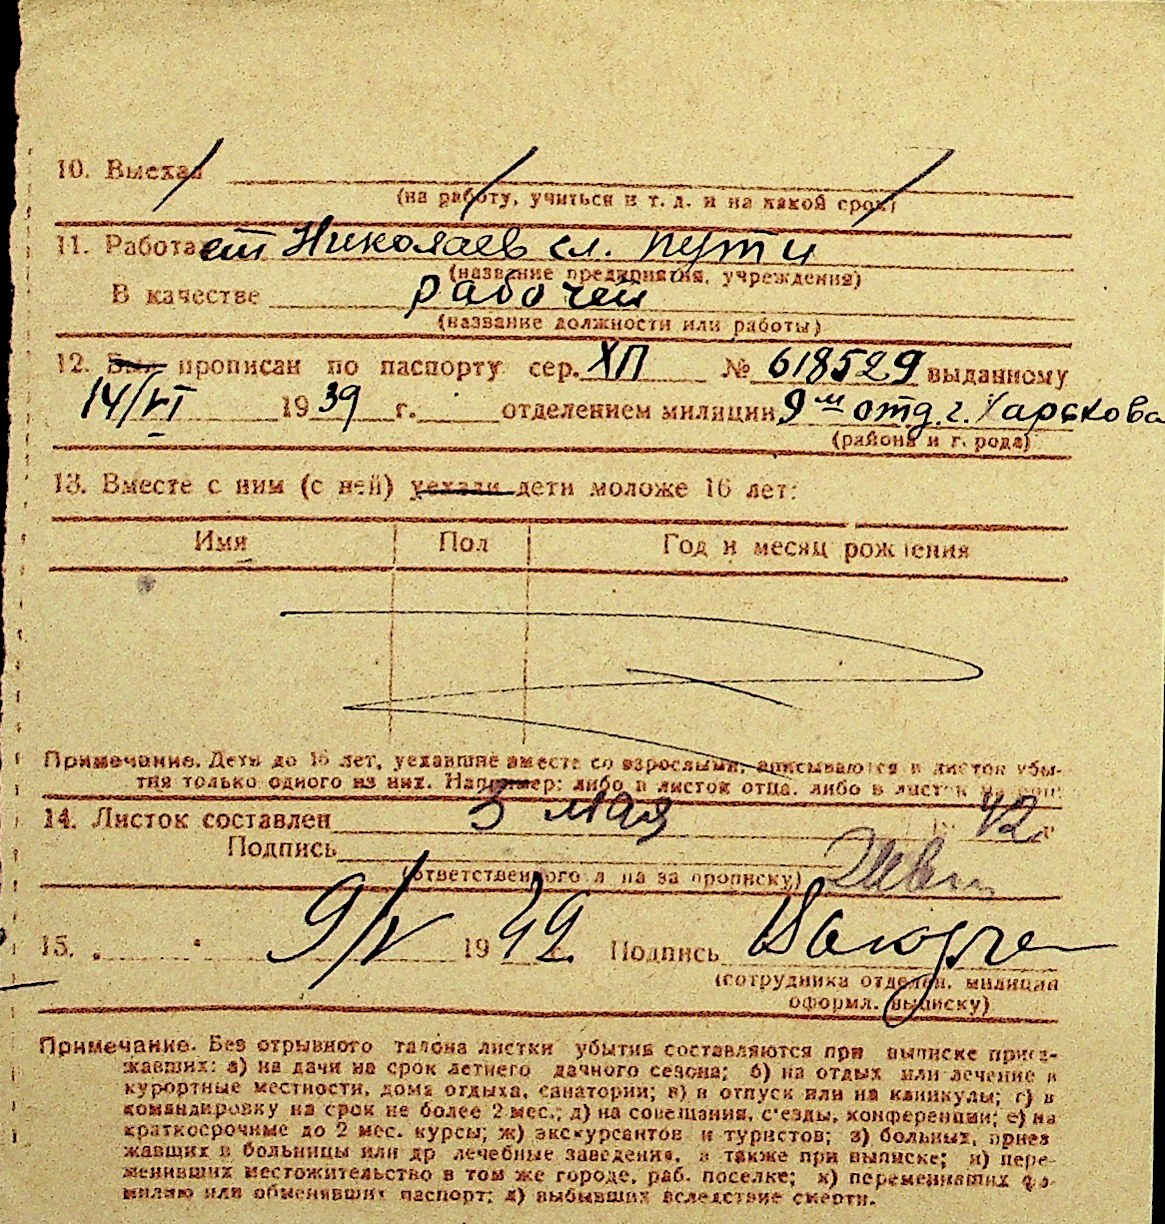 10. Выехал
(на работу, учиться и т. д. и на какой срок)
11. Работает Николаев сл. пути
(название предприятия, учреждения)
В качестве рабочей
(название должности или работы)
12. Был прописан по паспорту сер. ХП № 618529 выданному
14/VI 1939 г. отделением милиции 9 м отд. г. Харькова
(района и города)
13. Вместе с ним (с ней) уехали дети моложе 16 лет:
Имя Пол Год и месяц рождения
Примечание. Дети до 16 лет, уехавшие вместе со взрослыми, вписываются в листок убы-
тия только одного из них. Например: либо в листок отца, либо в листок
14. Листок составлен 5 мая 42 г
Подпись
(ответственного л па за прописку)
15. 9/V 1942 г. Подпись
(сотрудника отделен. милиции
оформл. выписку)
Примечание. Без отрывного талона листки убытия составляются при выписке приез-
жавших: а) на дачи на срок летнего дачного сезона; б) на отдых или лечение в
курортные местности, дома отдыха, санатории; в) в отпуск или на каникулы; г) в
командировку на срок не более 2 мес.; д) на совещания, с'езды, конференции; е) на
краткосрочные до 2 мес. курсы; ж) экскурсантов и туристов; з) больных, приез
жавших в больницы или др лечебные заведения, а также при выписке; и) пере-
менивших местожительство в том же городе, раб. поселке; к) переменивших фа-
милию или обменивших паспорт; л) выбывших вследствие смерти.